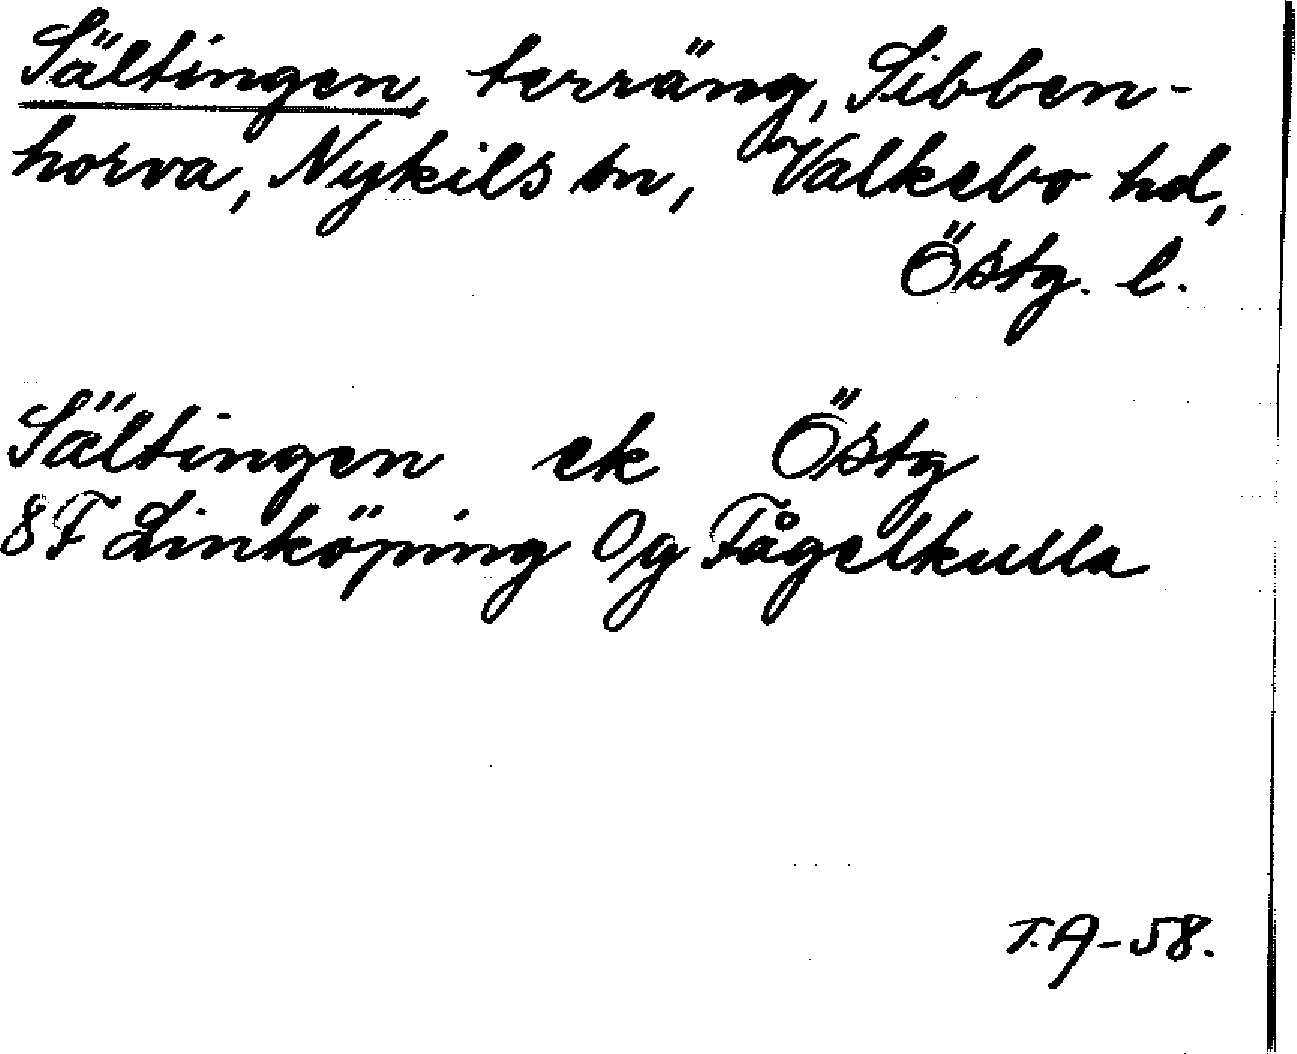 Sältingen, terräng, Sibben-
horva, Nykils sn, Valkebo hd,
Östg. l.
Sältingen ek Östg
8F Linköping 0g Fågelkulla
T.A-58.